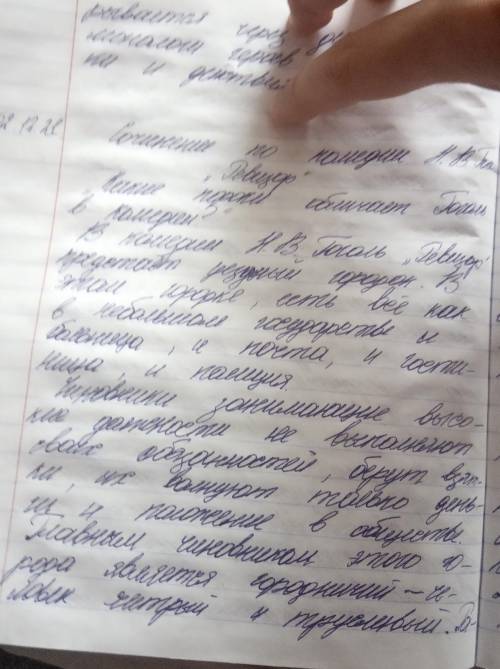 рывается
монологи через
ки и действи
02 12 21
Сочинение по комедии Н.В. Гог
"Ревизор"
"Какие пороки обличает Гоголь
в комедии?"
В комедии Н.В. Гоголь "Ревизор"
предстаёт уездный городок. В
этом городке, есть всё как
в небольшом государстве и
больница, и почта, и гости-
ница, и полиция.
Чиновники занимающие высо-
кие должности не выполняют
своих обязанностей, берут взят-
ки, их волнуют только день-
ги и положение в обществе
Главным чиновником этого го-
рода является городничий – че-
ловек хитрый и трусливый. В-